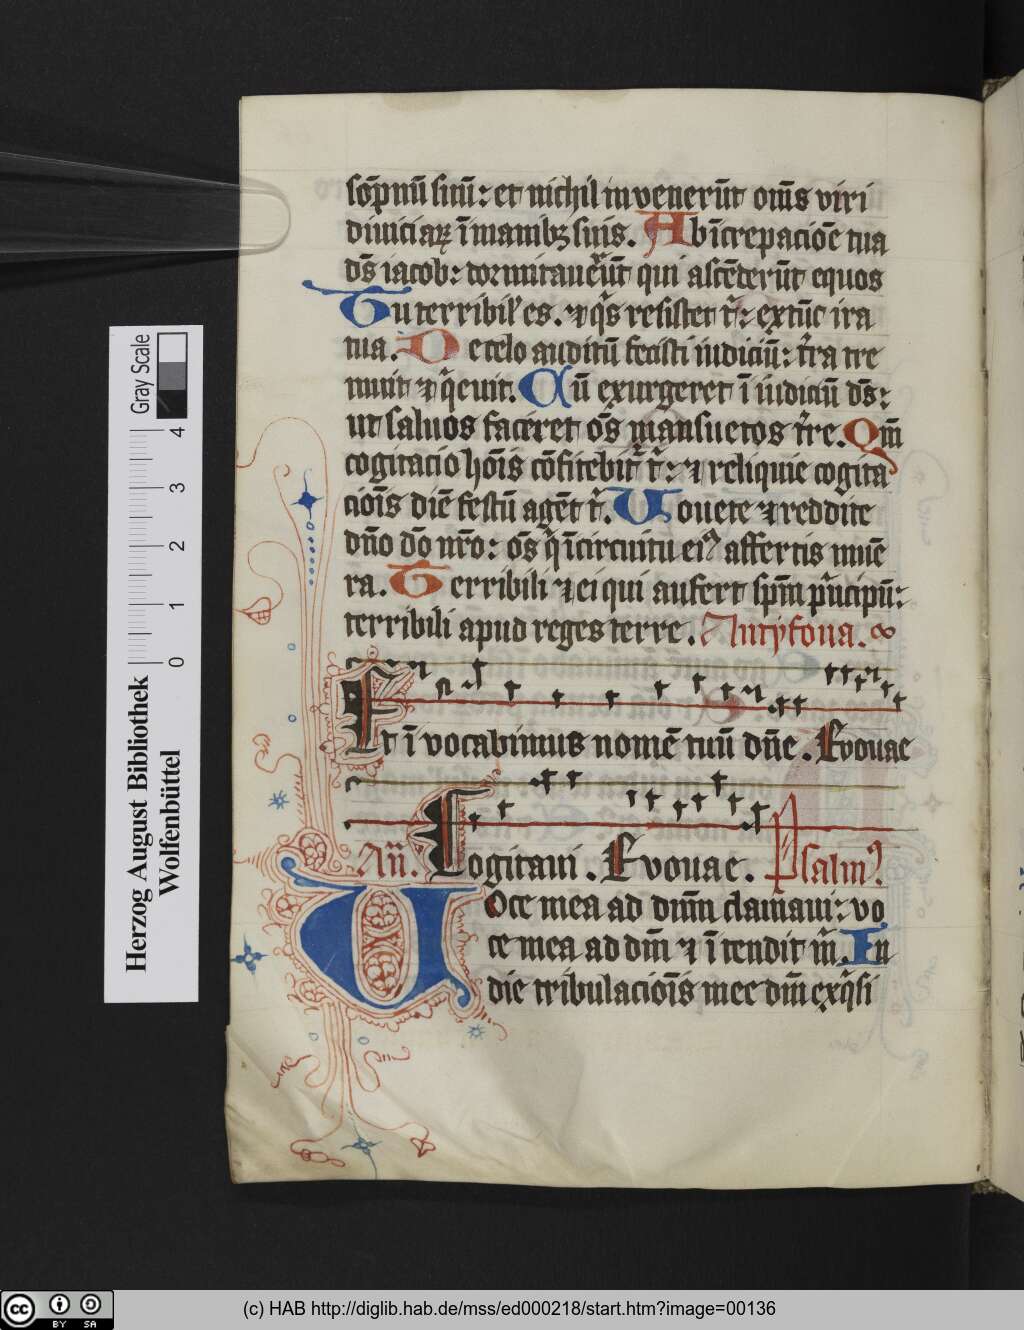 sōpnū suū: et nichil invenerūt om̄s viri
diuiciaꝝ ī manibꝫ suis. Ab īcrepaciōe tua
dn̄s iacob: dormitauer̄ūt qui ascēderūt equos
Tu terribil' es. ⁊ q̄s resistet t': extūc ira
tua. De celo auditū fecisti iudiciū: t'ra tre
muit ⁊ q'euit. Cū exurgeret ī iudiciū ds̄:
ut saluos faceret os̄ mansuetos t're. Qm̄
cogitacio hoīs cōfitebit' t': ⁊ reliquie cogita
cioīs diē festū agēt t'. Uouete ⁊ reddite
dn̄o dō nr̄o: os̄ q' ī circuitu ei⁹ affertis mūe
ra. Terribili ⁊ ei qui aufert spm̄ p'ncipū:
terribili apud reges terre. Antyfona.
Et ī vocabimus nomē tuū dn̄e. Evouae
Añ. Cogitaui. Evouae. Psalm⁹.
Uoce mea ad dm̄ clamaui: vo
ce mea ad dm̄ ⁊ ītendit m'. In
die tribulacioīs mee dm̄ exq'si
Gray Scale
4
3
2
1
0
Herzog August Bibliothek
Wolfenbüttel
cc BY SA
(c) HAB http://diglib.hab.de/mss/ed000218/start.htm?image=00136